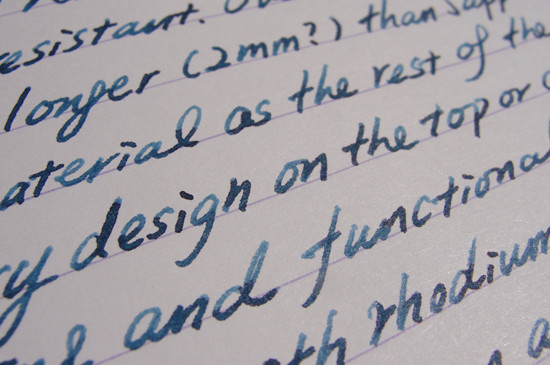 resistant.
longer (2mm?) than
material as the rest of the
design on the top or
and functional
rhodium